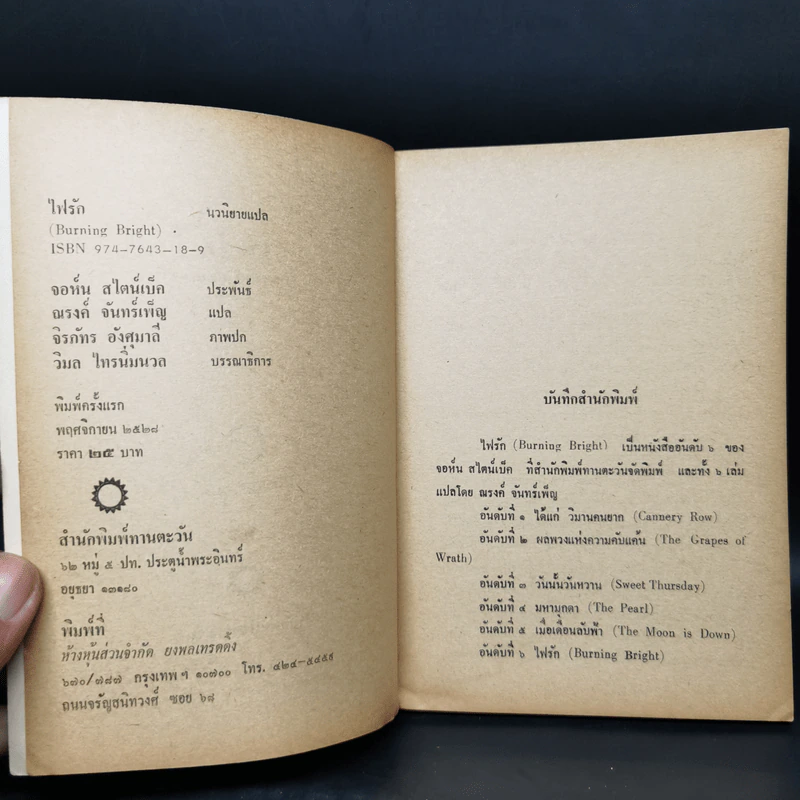 ไฟรัก นวนิยายแปล
(Burning Bright) .
ISBN 974-7643-18-9
จอห์น สไตน์เบ็ค ประพันธ์
ณรงค์ จันทร์เพ็ญ แปล
จิรภัทร อังศุมาลี ภาพปก
วิมล ไทรนิ่มนวล บรรณาธิการ
พิมพ์ครั้งแรก
พฤศจิกายน ๒๕๒๘
ราคา ๒๕ บาท
สำนักพิมพ์ทานตะวัน
๖๒ หมู่ ๕ ปท. ประตูน้ำพระอินทร์
อยุธยา ๑๓๑๘๐
พิมพ์ที่
ห้างหุ้นส่วนจำกัด ยงพลเทรดดิ้ง
๖๗๐/๗๘๗ กรุงเทพ ฯ ๑๐๗๐๐ โทร. ๔๒๔-๕๔๕๕
ถนนจรัญสนิทวงศ์ ซอย ๖๘
บันทึกสำนักพิมพ์
ไฟรัก (Burning Bright) เป็นหนังสืออันดับ ๖ ของ
จอห์น สไตน์เบ็ค ที่สำนักพิมพ์ทานตะวันจัดพิมพ์ และทั้ง ๖ เล่ม
แปลโดย ณรงค์ จันทร์เพ็ญ
อันดับที่ ๑ ได้แก่ วิมานคนยาก (Cannery Row)
อันดับที่ ๒ ผลพวงแห่งความคับแค้น (The Grapes of
Wrath)
อันดับที่ ๓ วันนั้นวันหวาน (Sweet Thursday)
อันดับที่ ๔ มหามุกดา (The Pearl)
อันดับที่ ๕ เมื่อเดือนลับฟ้า (The Moon is Down)
อันดับที่ ๖ ไฟรัก (Burning Bright)